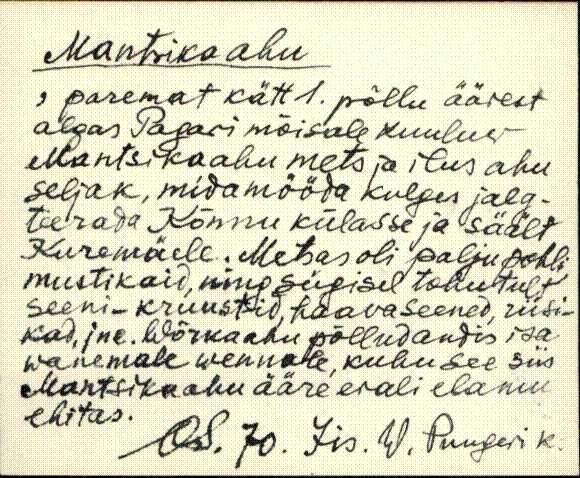 Mantsikaahu
, paremat kätt 1. põllu äärest
algas Pagari mõisale kuuluv
Mantsikaahu mets ja ilus ahu
seljak, midamööda kulges jalg-
teerada Konnu külasse ja säält
Kuremäele. Metsas oli palju pohli,
mustikaid, ning sügisel tohutult
seeni - kruustid, haavaseened, riisi-
kad, jne. Wõrkaahu põllud andis isa
wanemale wennale, kuhu see siis
Mantsikaahu ääre erali elamu
ehitas.
OS. 70. Jis. W. Pungeri k.